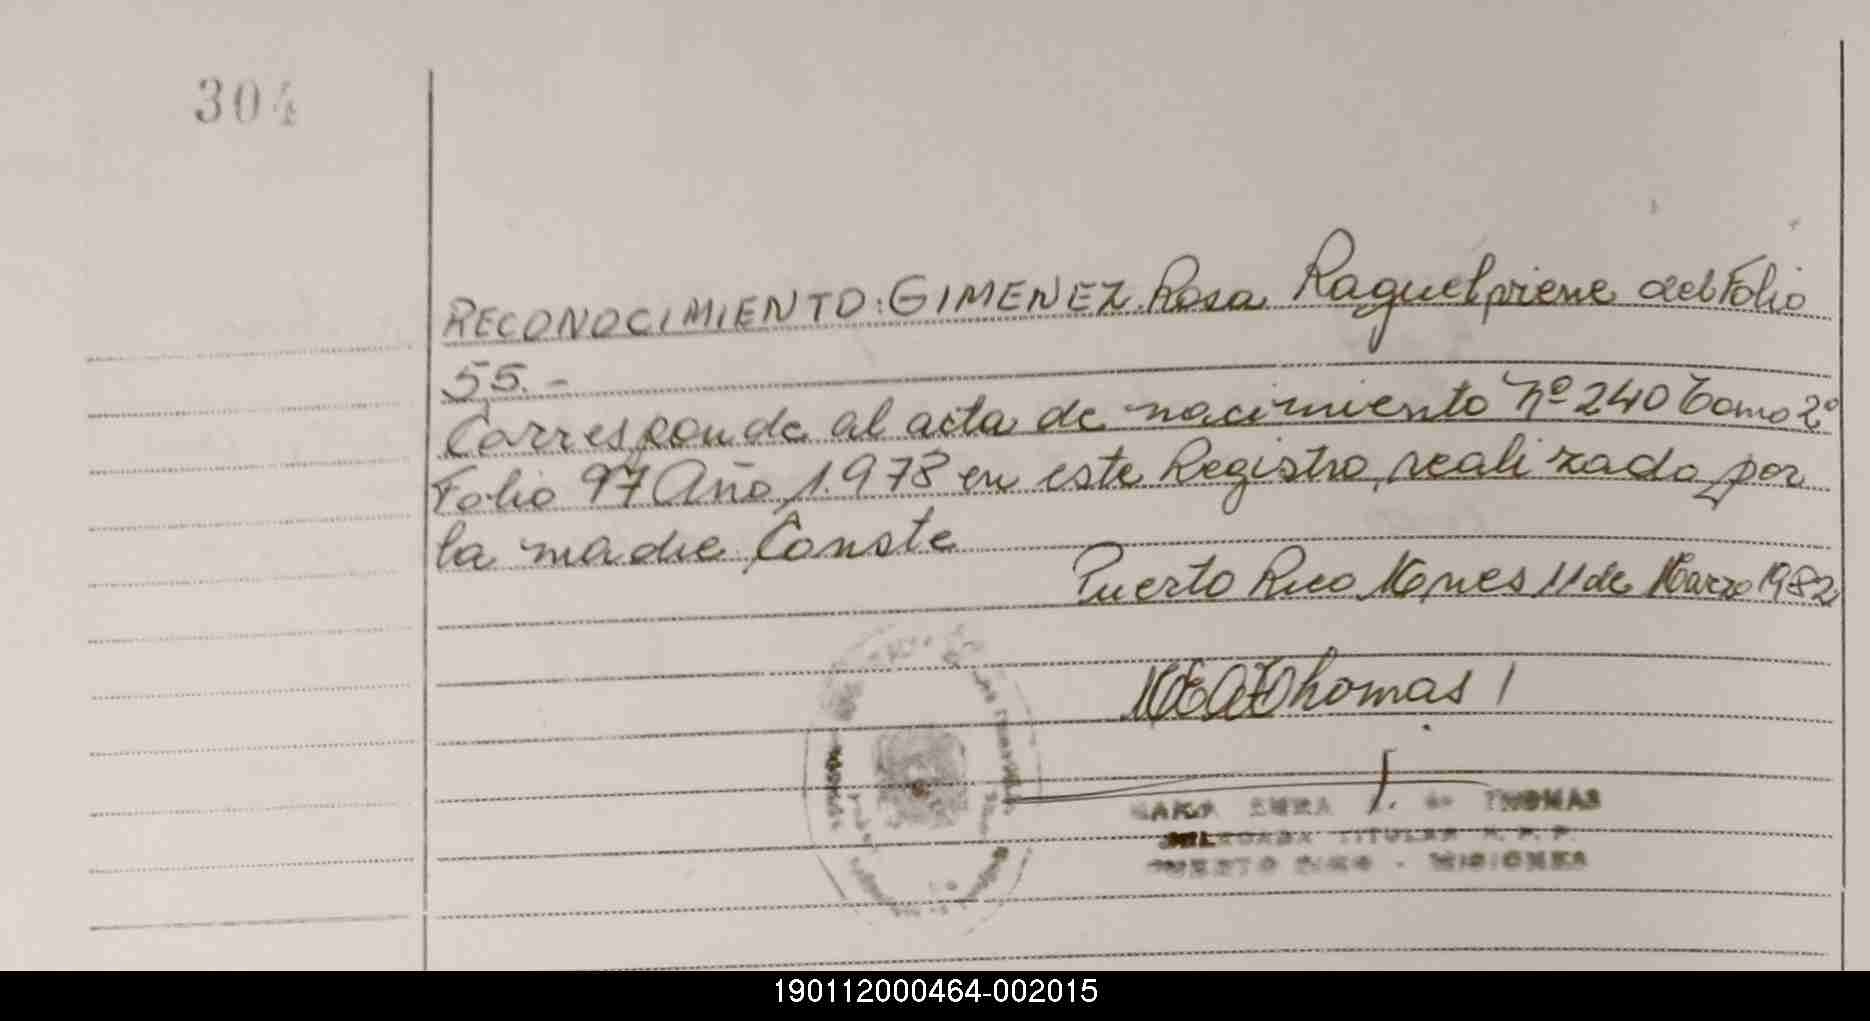 304
RECONOCIMIENTO: GIMENEZ Rosa Raquel viene del Folio
55.-
Corresponde al acta de nacimiento Nº 240 Tomo 2º
Folio 97 Año 1.978 en este Registro, realizado por
la madre. Conste
Puerto Rico Mnes 11 de Marzo 1982
Thomas
THOMAS
TITULAR R. P. P.
PUERTO RICO - MISIONES
190112000464-002015